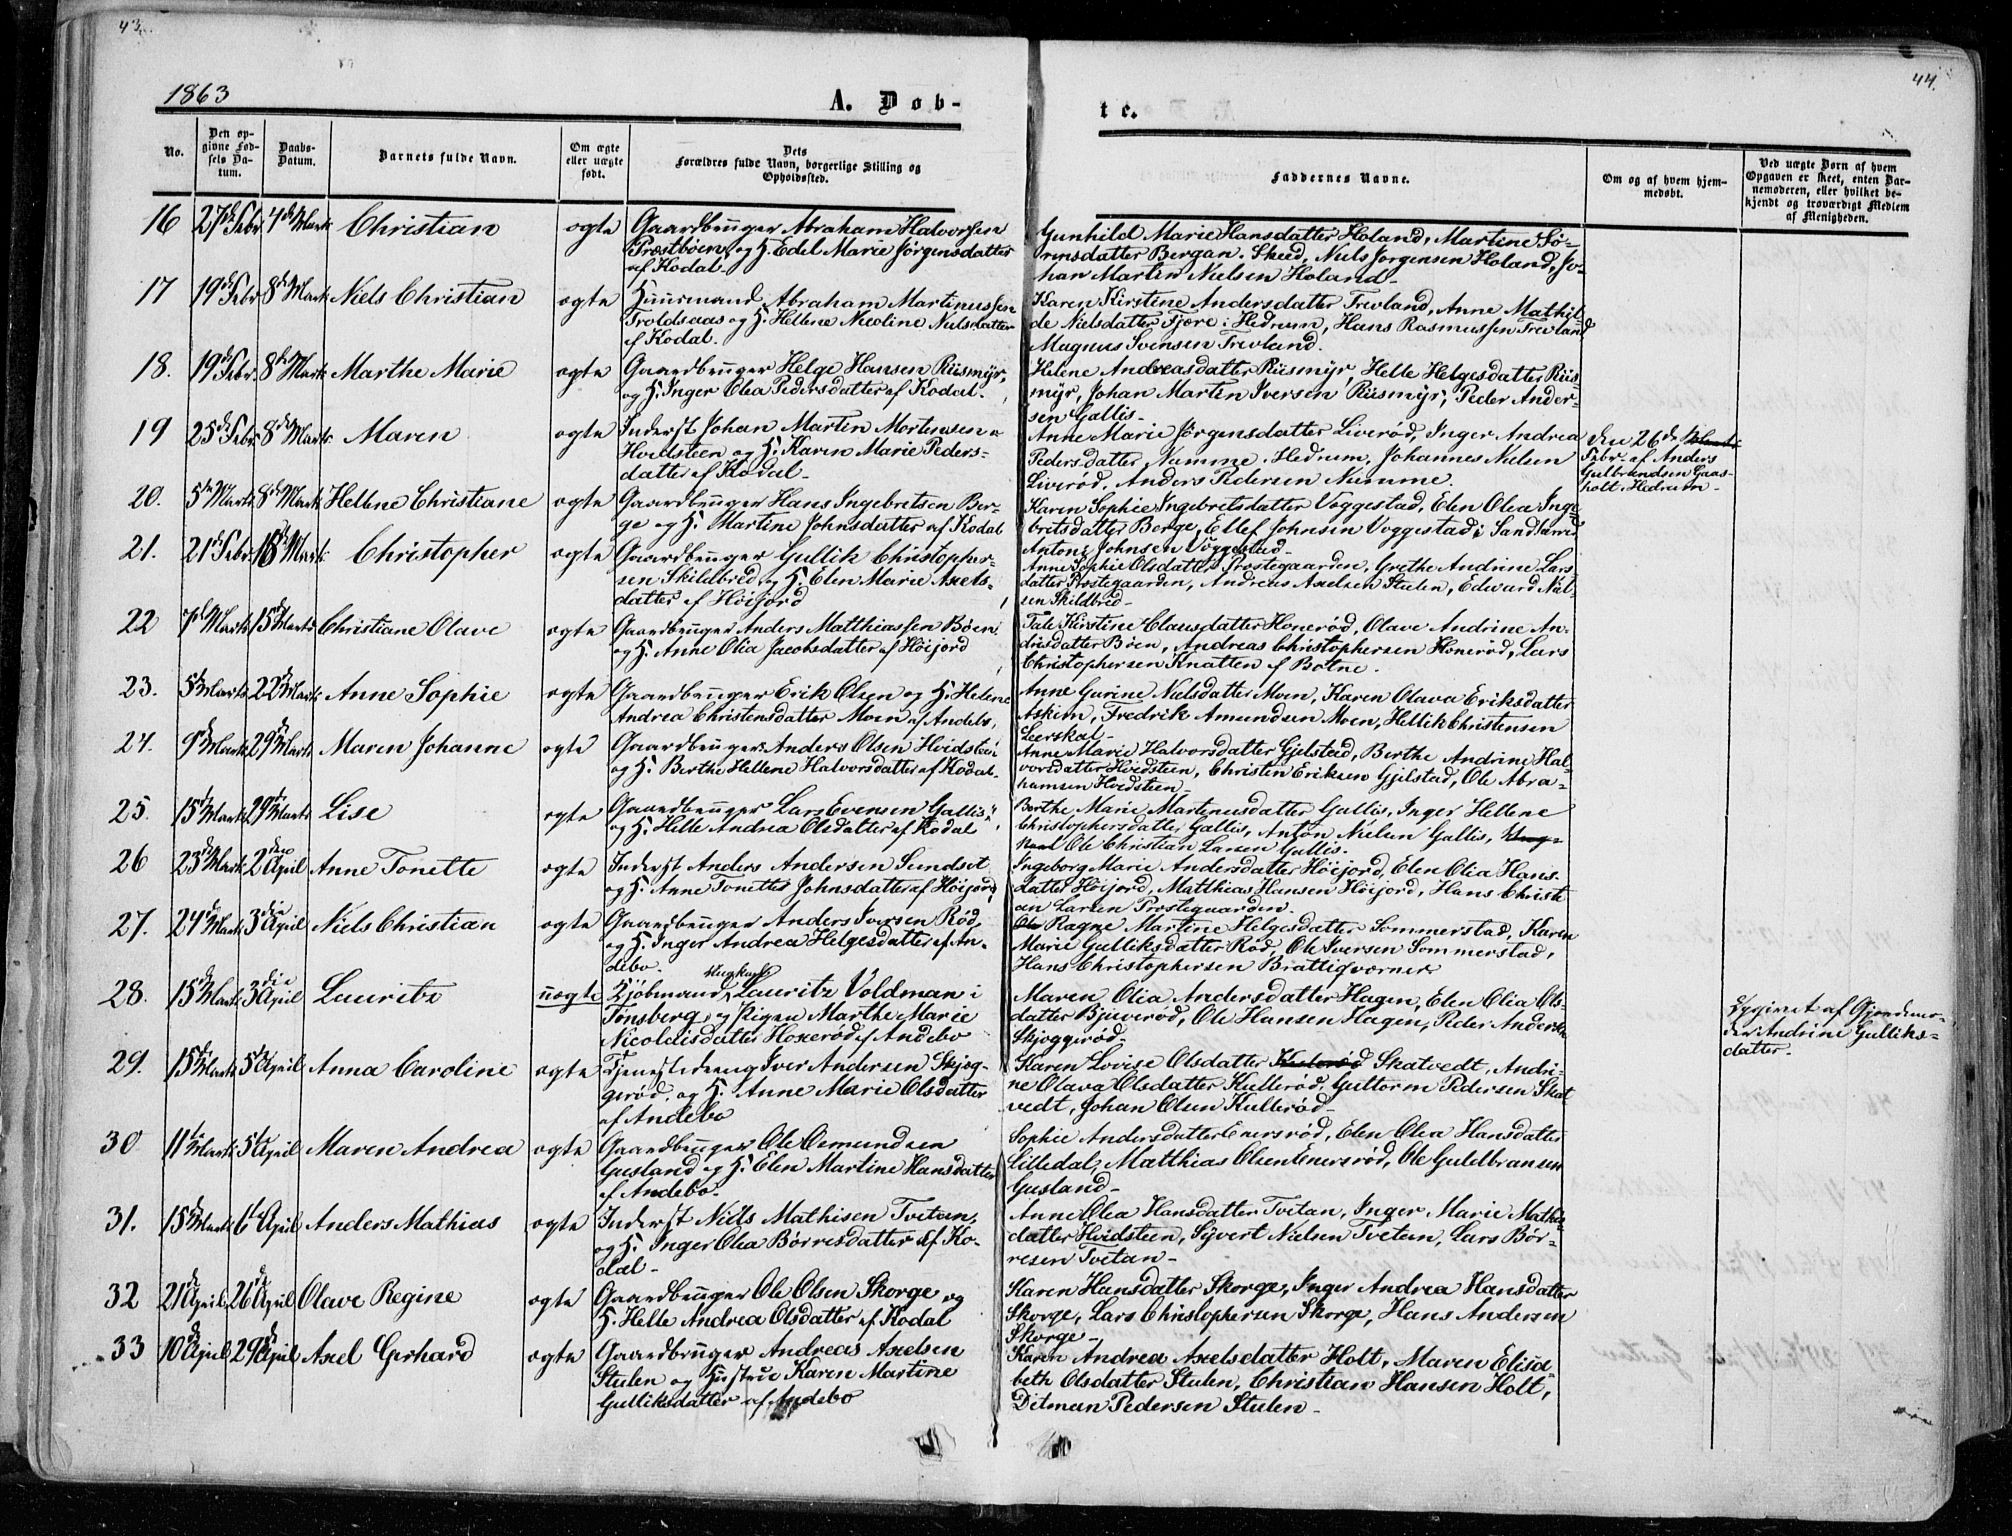 43.
44.
1863
A. Døb-
te.
No.
Den op-
givne Fød-
sels Da-
tum.
Daabs-
Datum.
Barnets fulde Navn.
Om ægte
eller uægte
født.
Dets
Forældres fulde Navn, borgerlige Stilling og
Opholdssted.
Faddernes Navne.
Om og af hvem hjem-
medøbt.
Ved uægte Børn af hvem
Opgaven er skeet, enten Bar-
nemoderen, eller hvilket be-
kjendt og troværdigt Medlem
af Menigheden.
16 27de Febr. de Marts Christian ægte Gaardbruger Abraham Halvorsen
Præstbøen, og H. Edel Marie Jørgensdatter
af Kodal.
Gunhild Marie Hansdatter Holand, Martine Sø-
rensdatter Bergan. Skeed, Niels Jørgensen Holand, Jo-
han Martin Nielsen Holand
17 19de Febr. 8de Marts Niels Christian ægte Huusmand Abraham Martinussen
Troldsaas og H. Hellene Nicoline Nielsdatter
af Kodal.
Karen Kirstine Andersdatter Trevland, Anne Mathil-
de Nielsdatter Fjære i Hedrum, Hans Rasmussen Trevland
Magnus Svensen Trevland.
18. 19de Febr. 8de Marts Marthe Marie ægte Gaardbruger Helge Hansen Riismyr,
og H. Inger Olea Pedersdatter af Kodal.
Helene Andreasdatter Riismyr, Helle Helgesdatter Riis-
myr, Johan Martin Iversen Riismyr, Peder Ander-
sen Gallis
19 25de Febr. 8de Marts Maren ægte Inderst Johan Martin Mortensen
Hvidsteen og H. Karen Marie Peders-
datter af Kodal
Anne Marie Jørgensdatter Liverød, Inger Andrea
Pedersdatter Numme. Hedrum, Johannes Nielsen
Liverød, Anders Pedersen Numme.
den 26de
Febr. af Anders
Gulbrandsen Gaas-
holt Hedrum
20. 5te Marts 8de Marts Hellene Christiane ægte Gaardbruger Hans Ingebretsen Ber-
ge og H. Martine Johnsdatter af Kodal
Karen Sophie Ingebretsdatter Voggestad, Elen Olea Inge-
bretsdatter Berge, Ellef Johnsen Voggestad i Sandeherred
Anton Johnsen Voggestad
21. 21de Febr. Marts Christopher ægte Gaardbruger Gullik Christopher-
sen Skildbred og H. Elen Marie Axels-
datter af Høijord
Anne Sophie Olsdatter Prestegaarden, Grethe Andrine Lars-
datter Prestegaarden, Andreas Axelsen Stulen, Edvard Niel-
sen Skildbred
22 7de Marts 15de Marts Christiane Olave ægte Gaardbruger Anders Matthiassen Bøen
og H. Anne Olia Jacobsdatter af Høijord
Tale Kirstine Clausdatter Honerød, Olave Andrine An-
drisdatter Bøen, Andreas Christophersen Honerød, Lars
Christophersen Knatten af Botne.
23. 5te Marts 22de Marts Anne Sophie ægte Gaardbruger Erik Olsen og H. Helene
Andrea Christensdatter Moen af Andebo,
Anne Gurine Nielsdatter Moen, Karen Olava Eriksdatter
Askim, Fredrik Amundsen Moen, Hellik Christensen
Leerskal
24. 9de Marts 29de Marts Maren Johanne ægte Gaardbruger Anders Olsen Hvidsteen
og H. Berthe Hellene Halvorsdatter af Kodal.
Anne Marie Halvorsdatter Gjelstad, Berthe Andrine Hal-
vorsdatter Hvidsteen, Christen Eriksen Gjelstad, Ole Abra-
hamsen Hvidsteen
25. 15de Marts 29de Marts Lise ægte Gaardbruger Lars Evensen Gallis
og H. Helle Andrea Olsdatter af Kodal
Berthe Marie Martinusdatter Gallis, Inger Hellene
Christophersdatter Gallis, Anton Nielsen Gallis, Ung-
karl Ole Christian Larsen Gallis.
26 23de Marts 2den April Anne Tonette ægte Inderst Anders Andersen Sundset
og H. Anne Tonette Johnsdatter af Høijord
Ingeborg Marie Andersdatter Høijord, Elen Olia Hans-
datter Høijord, Matthias Hansen Høijord, Hans Christi-
an Larsen Prestegaarden.
27. 24de Marts 3die April Niels Christian ægte Gaardbruger Anders Iversen Rød
og H. Inger Andrea Helgesdatter af An-
debo.
Ole Ragne Martine Helgesdatter Sommerstad, Karen
Marie Gulliksdatter Rød, Ole Iversen Sommerstad,
Hans Christophersen Brattiqværner
28. 15de Marts 3die April Lauritz uægte Ungkarl
Kjøbmand Lauritz Voldman i
Tønsberg og Pigen Marthe Marie
Nicolaisdatter Honerød af Andebo
Maren Olia Andersdatter Hagen, Elen Olia Ols-
datter Bjuerød, Ole Hansen Hagen, Peder Andersen
Skjoggerød
Opgivet af Gjordemo-
der Andrine Gulliks-
datter.
29. 15de Marts 5te April Anna Caroline ægte Tjenestedreng Iver Andersen Skjog-
gerød, og H. Anne Marie Olsdatter
af Andebo
Karen Lovise Olsdatter Skatvedt, Andri-
ne Olava Olsdatter Kullerød, Guttorm Pedersen Skat-
vedt, Johan Olsen Kullerød
30 11te Marts 5te April Maren Andrea ægte Gaardbruger Ole Osmundsen
Gusland og H. Elen Martine Hansdatter
af Andebo.
Sophie Andersdatter Enersrød, Elen Olea Hansdatter
Lilledal, Matthias Olsen Enersrød, Ole Guldbransen
Gusland
31. 15de Marts 6te April Anders Mathias ægte Inderst Niels Mathisen Tvetan,
og H. Inger Olea Børresdatter af Ko-
dal
Anne Olea Hansdatter Tvetan, Inger Marie Mathis-
datter Hvidsteen, Syvert Nielsen Tvetan, Lars Bør-
resen Tvetan
32 21de April 26de April Olave Regine ægte Gaardbruger Ole Olsen Skorge og
H. Helle Andrea Olsdatter af Kodal
Karen Hansdatter Skorge, Inger Andrea Hansdatter
Skorge, Lars Christophersen Skorge, Hans Andersen
Skorge
33 10de April 29de April Axel Gerhard ægte Gaardbruger Andreas Axelsen
Stulen og Hustrue Karen Martine
Gulliksdatter af Andebo
Karen Andrea Axelsdatter Holt, Maren Elisa-
beth Olsdatter Stulen, Christian Hansen Holt,
Ditman Pedersen Stulen